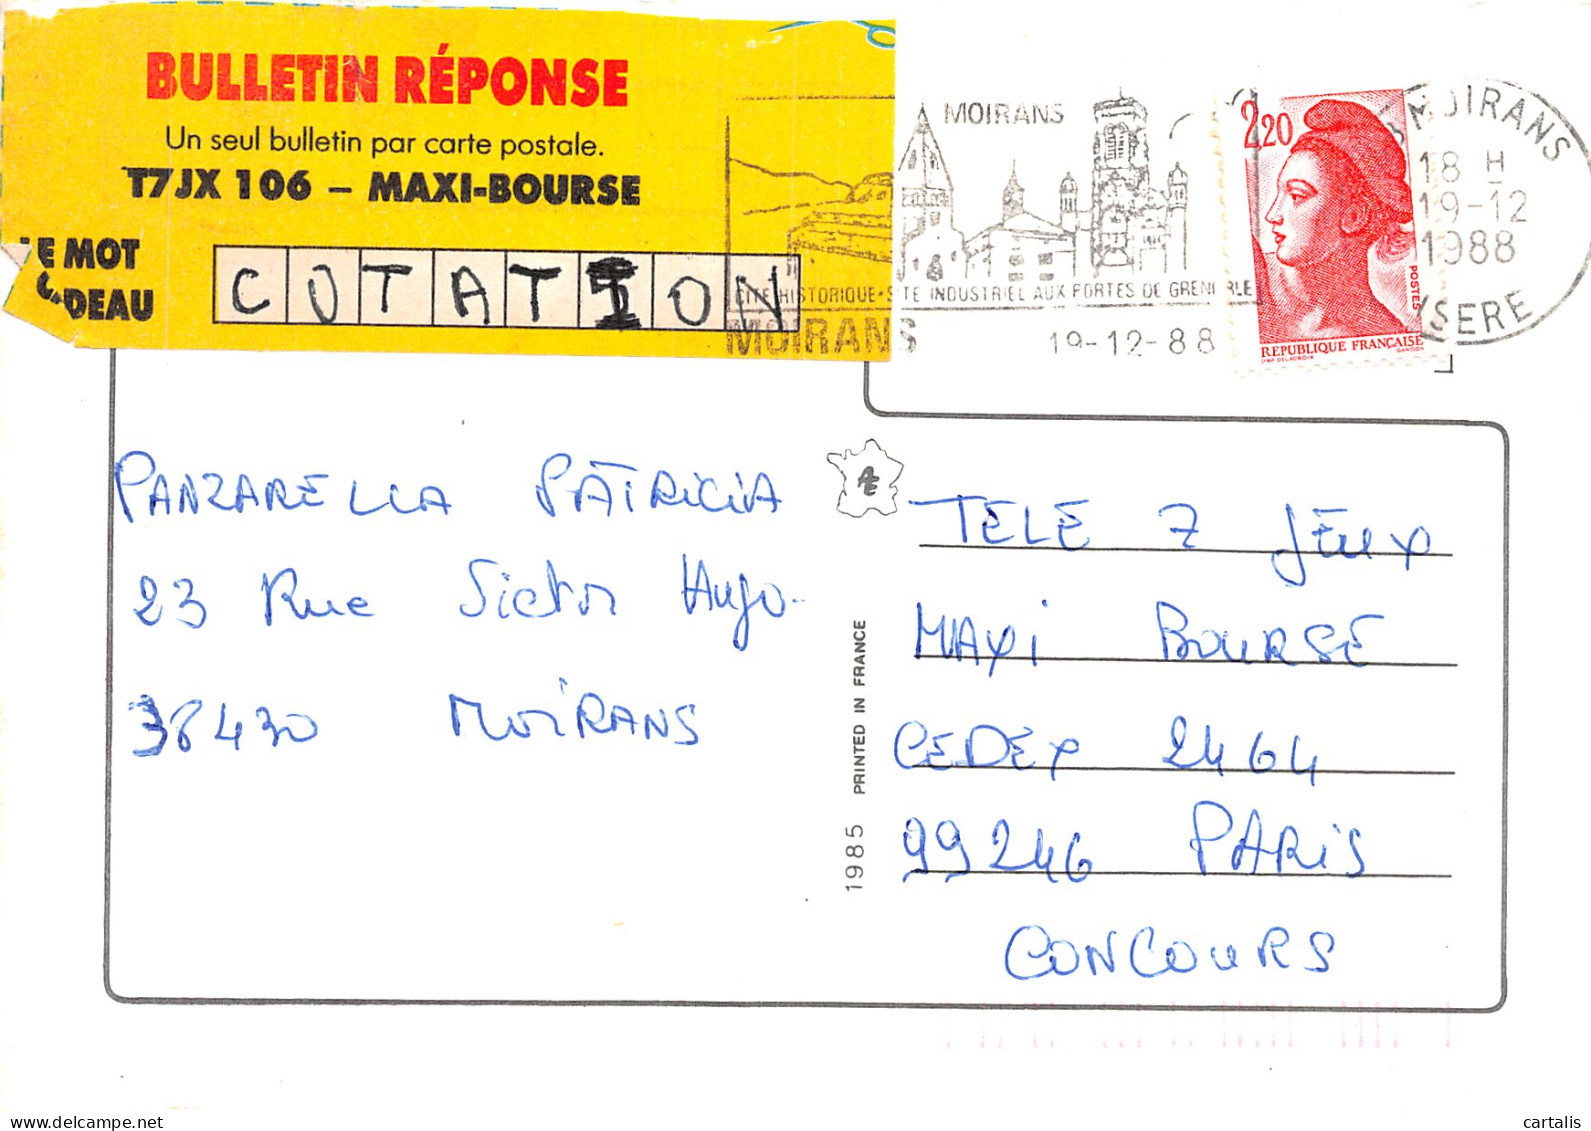 BULLETIN RÉPONSE
Un seul bulletin par carte postale.
T7JX 106 – MAXI-BOURSE
LE MOT
CADEAU
COTATION
MOIRANS
CITE HISTORIQUE • SITE INDUSTRIEL AUX PORTES DE GRENOBLE
MOIRANS
19-12-88
2,20
POSTES
REPUBLIQUE FRANÇAISE
MOIRANS
18 H
19-12
1988
ISERE
PANZARELLA PATRICIA
23 Rue Victor Hugo.
38430 MOIRANS
AE
1985 PRINTED IN FRANCE
TELE 7 JEUX
MAXI BOURSE
CEDEX 2464
99246 PARIS
CONCOURS
delcampe.net
cartalis